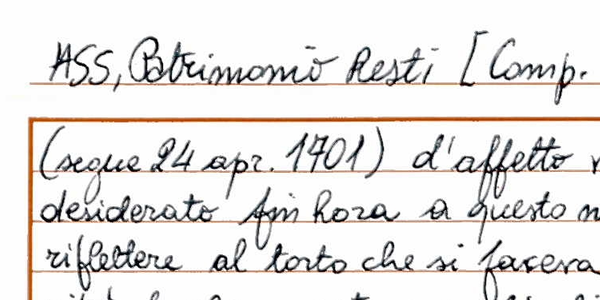 ASS, Patrimonio Resti [Comp.
(segue 24 apr. 1701) d'affetto
desiderato fin hora a questo
riflettere al torto che si faceva